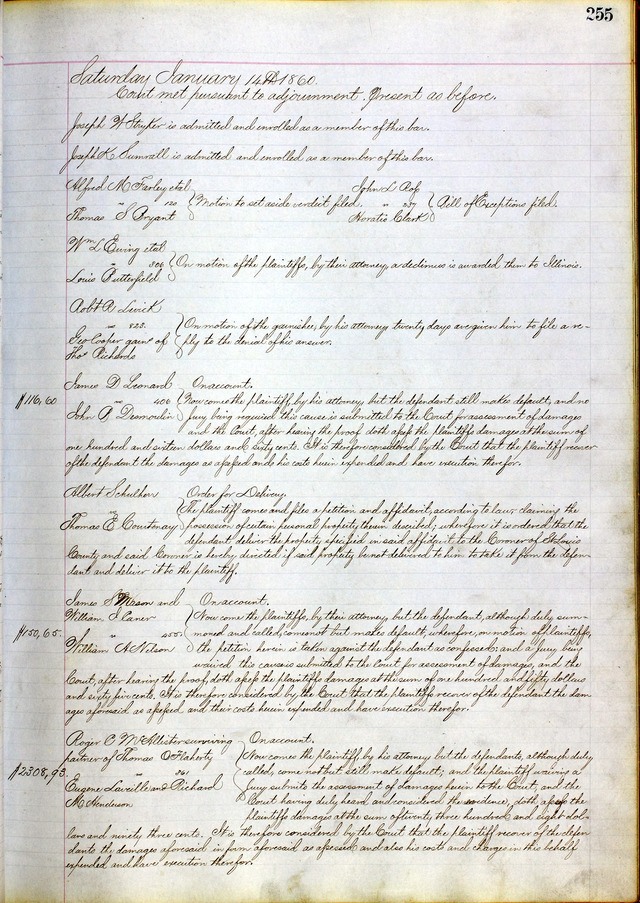 255
Saturday January 14th 1860.
Court met pursuant to adjournment. Present as before.
Joseph W Stryker is admitted and enrolled as a member of this bar.
Joseph K Sumrall is admitted and enrolled as a member of this bar.
Alfred M Farley etal
" 120 Motion to set aside verdict filed.
Thomas S Bryant
John L Roß
" 37 Bill of Exceptions filed.
Horatio Clark
Wm L Ewing etal
" 306 On motion of the plaintiffs, by their attorney, a dedimus is awarded them to Illinois.
Louis Butterfield
Robt A
" 323. On motion of the garnishee, by his attorney, twenty days are given him to file a re-
Geo Cooper garns of ply to the denial of his answer.
Thos Richards
James D Leonard On account.
$116,60 " 406 Now comes the plaintiff, by his attorney, but the defendant still makes default, and no
John A Desmoulin jury being required this cause is submitted to the Court for assessment of damages
and the Court, after hearing the proof doth assess the plaintiffs damages at the sum of
one hundred and sixteen dollars and sixty cents. It is therefore considered by the Court that the plaintiff recover
of the defendant the damages as assessed and his costs herein expended and have execution therefor.
Albert Schulherr Order for Delivery.
" The plaintiff comes and files a petition and affidavit, according to law, claiming the
Thomas E Courtnay possession of certain personal property therein described; wherefore it is ordered that the
defendant deliver the property specified in said affidavit to the Coroner of St Louis
County and said Coroner is hereby directed if said property be not delivered to him to take it from the defen-
dant and deliver it to the plaintiff.
James S Mason and On account.
William S Caner Now come the plaintiffs, by their attorney, but the defendant, although duly sum-
$150,65. " 455. moned and called, comes not but makes default, wherefore, on motion of plaintiffs,
William A Nelson the petition herein is taken against the defendant as confessed: and a jury being
waived this cause is submitted to the Court for assessment of damages, and the
Court, after hearing the proof, doth assess the plaintiffs damages at the sum of one hundred and fifty dollars
and sixty five cents. It is therefore considered by the Court that the plaintiffs recover of the defendant the dam
ages aforesaid as assessed, and their costs herein expended and have execution therefor.
Roger O McAllister surviving On account.
partner of Thomas O'Flaherty Now comes the plaintiff, by his attorney but the defendants, although duly
$2308,93. " 261 called, come not but still make default; and the plaintiff waiving a
Eugene Laville and Richard jury submits the assessment of damages herein to the Court, and the
M Henderson Court having duly heard and considered the evidence, doth, assess the
plaintiffs damages at the sum of twenty three hundred and eight dol-
lars and ninety three cents. It is therefore considered by the Court that the plaintiff recover of the defen
dants the damages aforesaid in form aforesaid as assessed and also his costs and charges in this behalf
expended and have execution therefor.